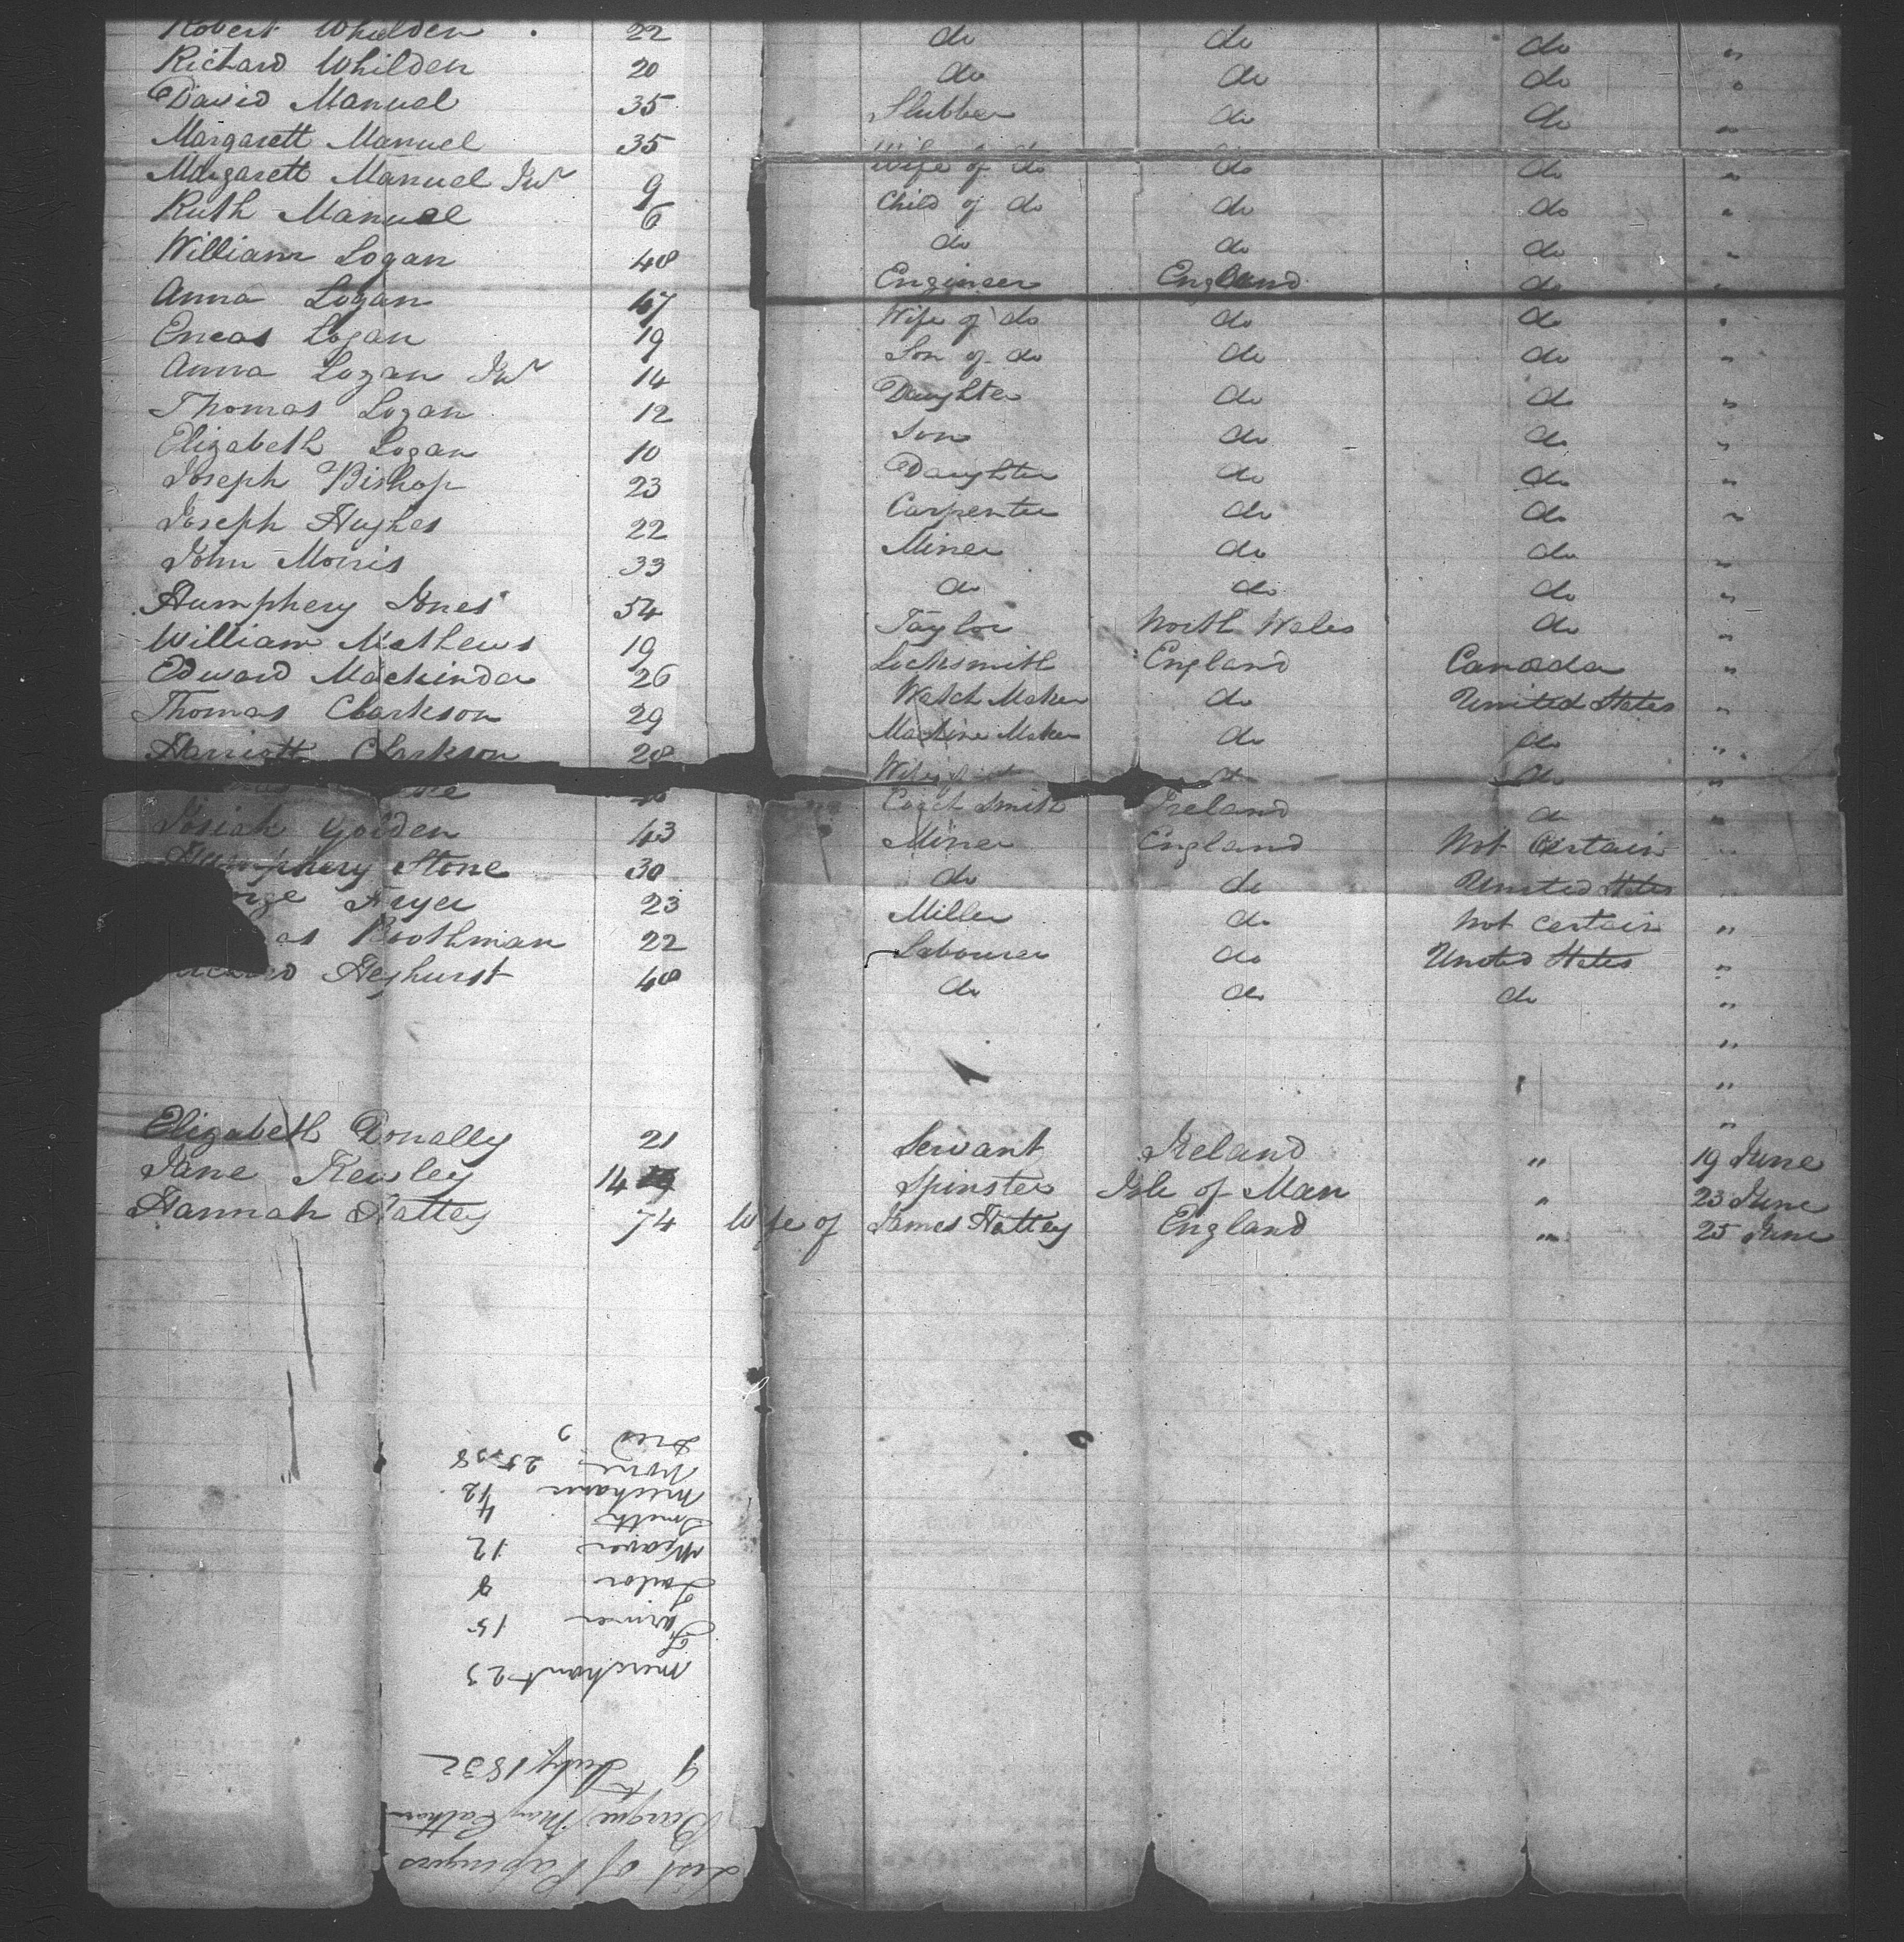 Robert Whilden 22 do do do "
Richard Whilden 20 do do do "
David Manuel 35 Slubber do do "
Margarett Manuel 35 Wife of do do do "
Margarett Manuel Junr 9 Child of do do do "
Ruth Manuel 6 do do do "
William Logan 48 Engineer England do "
Anna Logan 47 Wife of do do do "
Eneas Logan 19 Son of do do do "
Anna Logan Junr 14 Daughter do do "
Thomas Logan 12 Son do do "
Elizabeth Logan 10 Daughter do do "
Joseph Bishop 23 Carpenter do do "
Joseph Hughes 22 Miner do do "
John Morris 33 do do do "
Humphery Jones 54 Taylor North Wales do "
William Mathews 19 Locksmith England Canada "
Edward Mackinder 26 Watch Maker do United States "
Thomas Clarkson 29 Machine Maker do do "
Harriott Clarkson 28 Wife do "
Coach Smith Ireland do "
Josiah Golden 43 Miner England Not Certain "
Humphery Stone 30 do do United States "
Fryer 23 Miller do Not Certain "
as Boothman 22 Labourer do United States "
Heyhurst 48 do do do "
"
"
"
Elizabeth Donally 21 Servant Ireland " 19 June
Jane Kewley 14 Spinster Isle of Man " 23 June
Hannah Hattey 74 Wife of James Hattey England " 25 June
List of Passengers
Barque Mary Catherine
9th July 1832
Merchant 23
Farmer 15
Tailor 8
Weaver 12
Smith 4
Mechanic 12
None 25.58
Died 2